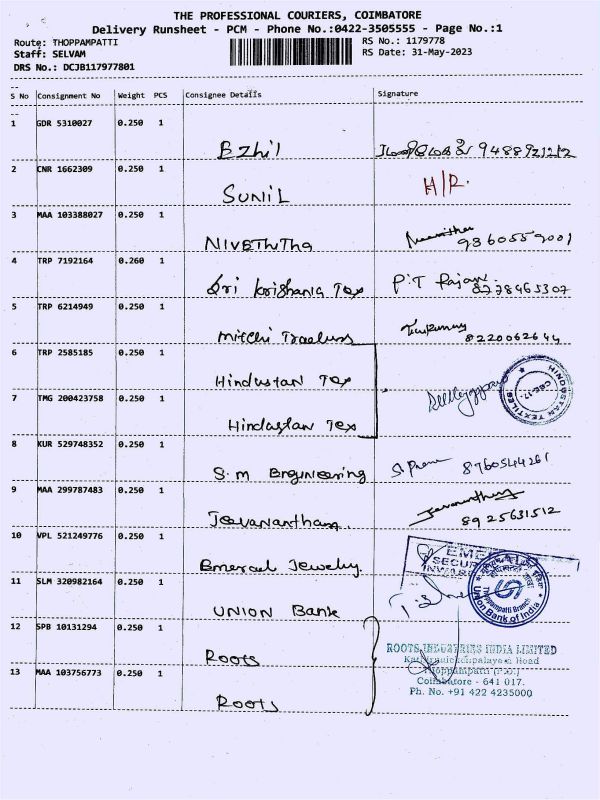 THE PROFESSIONAL COURIERS, COIMBATORE
Delivery Runsheet - PCM - Phone No.:0422-3505555 - Page No.:1
Route: THOPPAMPATTI
RS No.: 1179778
Staff: SELVAM
RS Date: 31-May-2023
DRS No.: DCJB117977801
S No Consignment No Weight PCS Consignee Details Signature
1 GDR 5310027 0.250 1
Ezhil 9488921212
2 CNR 1662309 0.250 1
SUNIL H/R.
3 MAA 103388027 0.250 1
NIVETHITHA 9360559001
4 TRP 7192164 0.260 1
Sri Krishana Tex P.T Rajan 8778465307
5 TRP 6214949 0.250 1
8220062644
6 TRP 2585185 0.250 1
Hindustan Tex
HINDUSTAN TEXTILES
CBE-17.
7 TMG 200423758 0.250 1
Hindustan Tex
8 KUR 529748352 0.250 1
S.M Engineering 8760544261
9 MAA 299787483 0.250 1
Jeevanantham. 8925631512
10 VPL 521249776 0.250 1
Emerald Jewelry
11 SLM 320982164 0.250 1
UNION Bank
Thoppampatti Branch
Union Bank of India
12 SPB 10131294 0.250 1
Roots
ROOTS INDUSTRIES INDIA LIMITED
Road
Thoppampatti (P.O.)
13 MAA 103756773 0.250 1
Coimbatore - 641 017.
Ph. No. +91 422 4235000
Roots